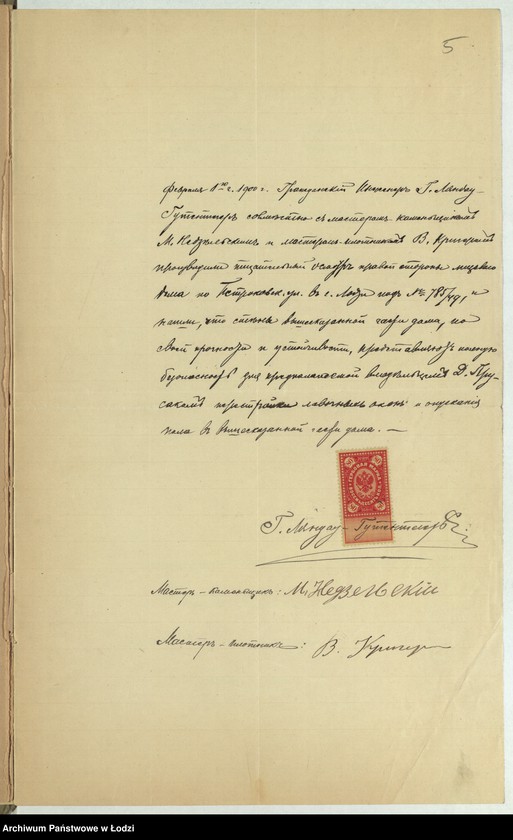 5
Февраля 1го с. 1900 г. Гражданскій Инженеръ Г. Ляндау-
Гутентегеръ совмѣстно съ мастеромъ каменьщикомъ
М. Недзельскимъ и мастеромъ плотникомъ В. Кригеромъ
производили тщательный осмотръ правой стороны лицеваго
дома по Петроковск. ул. въ г. Лодзи подъ № 785/49, и
нашли, что стѣны вышесказанной части дома, по
своей прочности и устойчивости, представляютъ полную
безопасность для предполагаемой владѣльцемъ Д. Пру-
сакомъ перестройки лавочныхъ оконъ и опусканія
пола въ вышесказанной части дома. —
Г. Ляндау-Гутентегеръ
Мастеръ-каменьщикъ: М. Недзельскій
Мастеръ-плотникъ: В. Кригеръ
Archiwum Państwowe w Łodzi